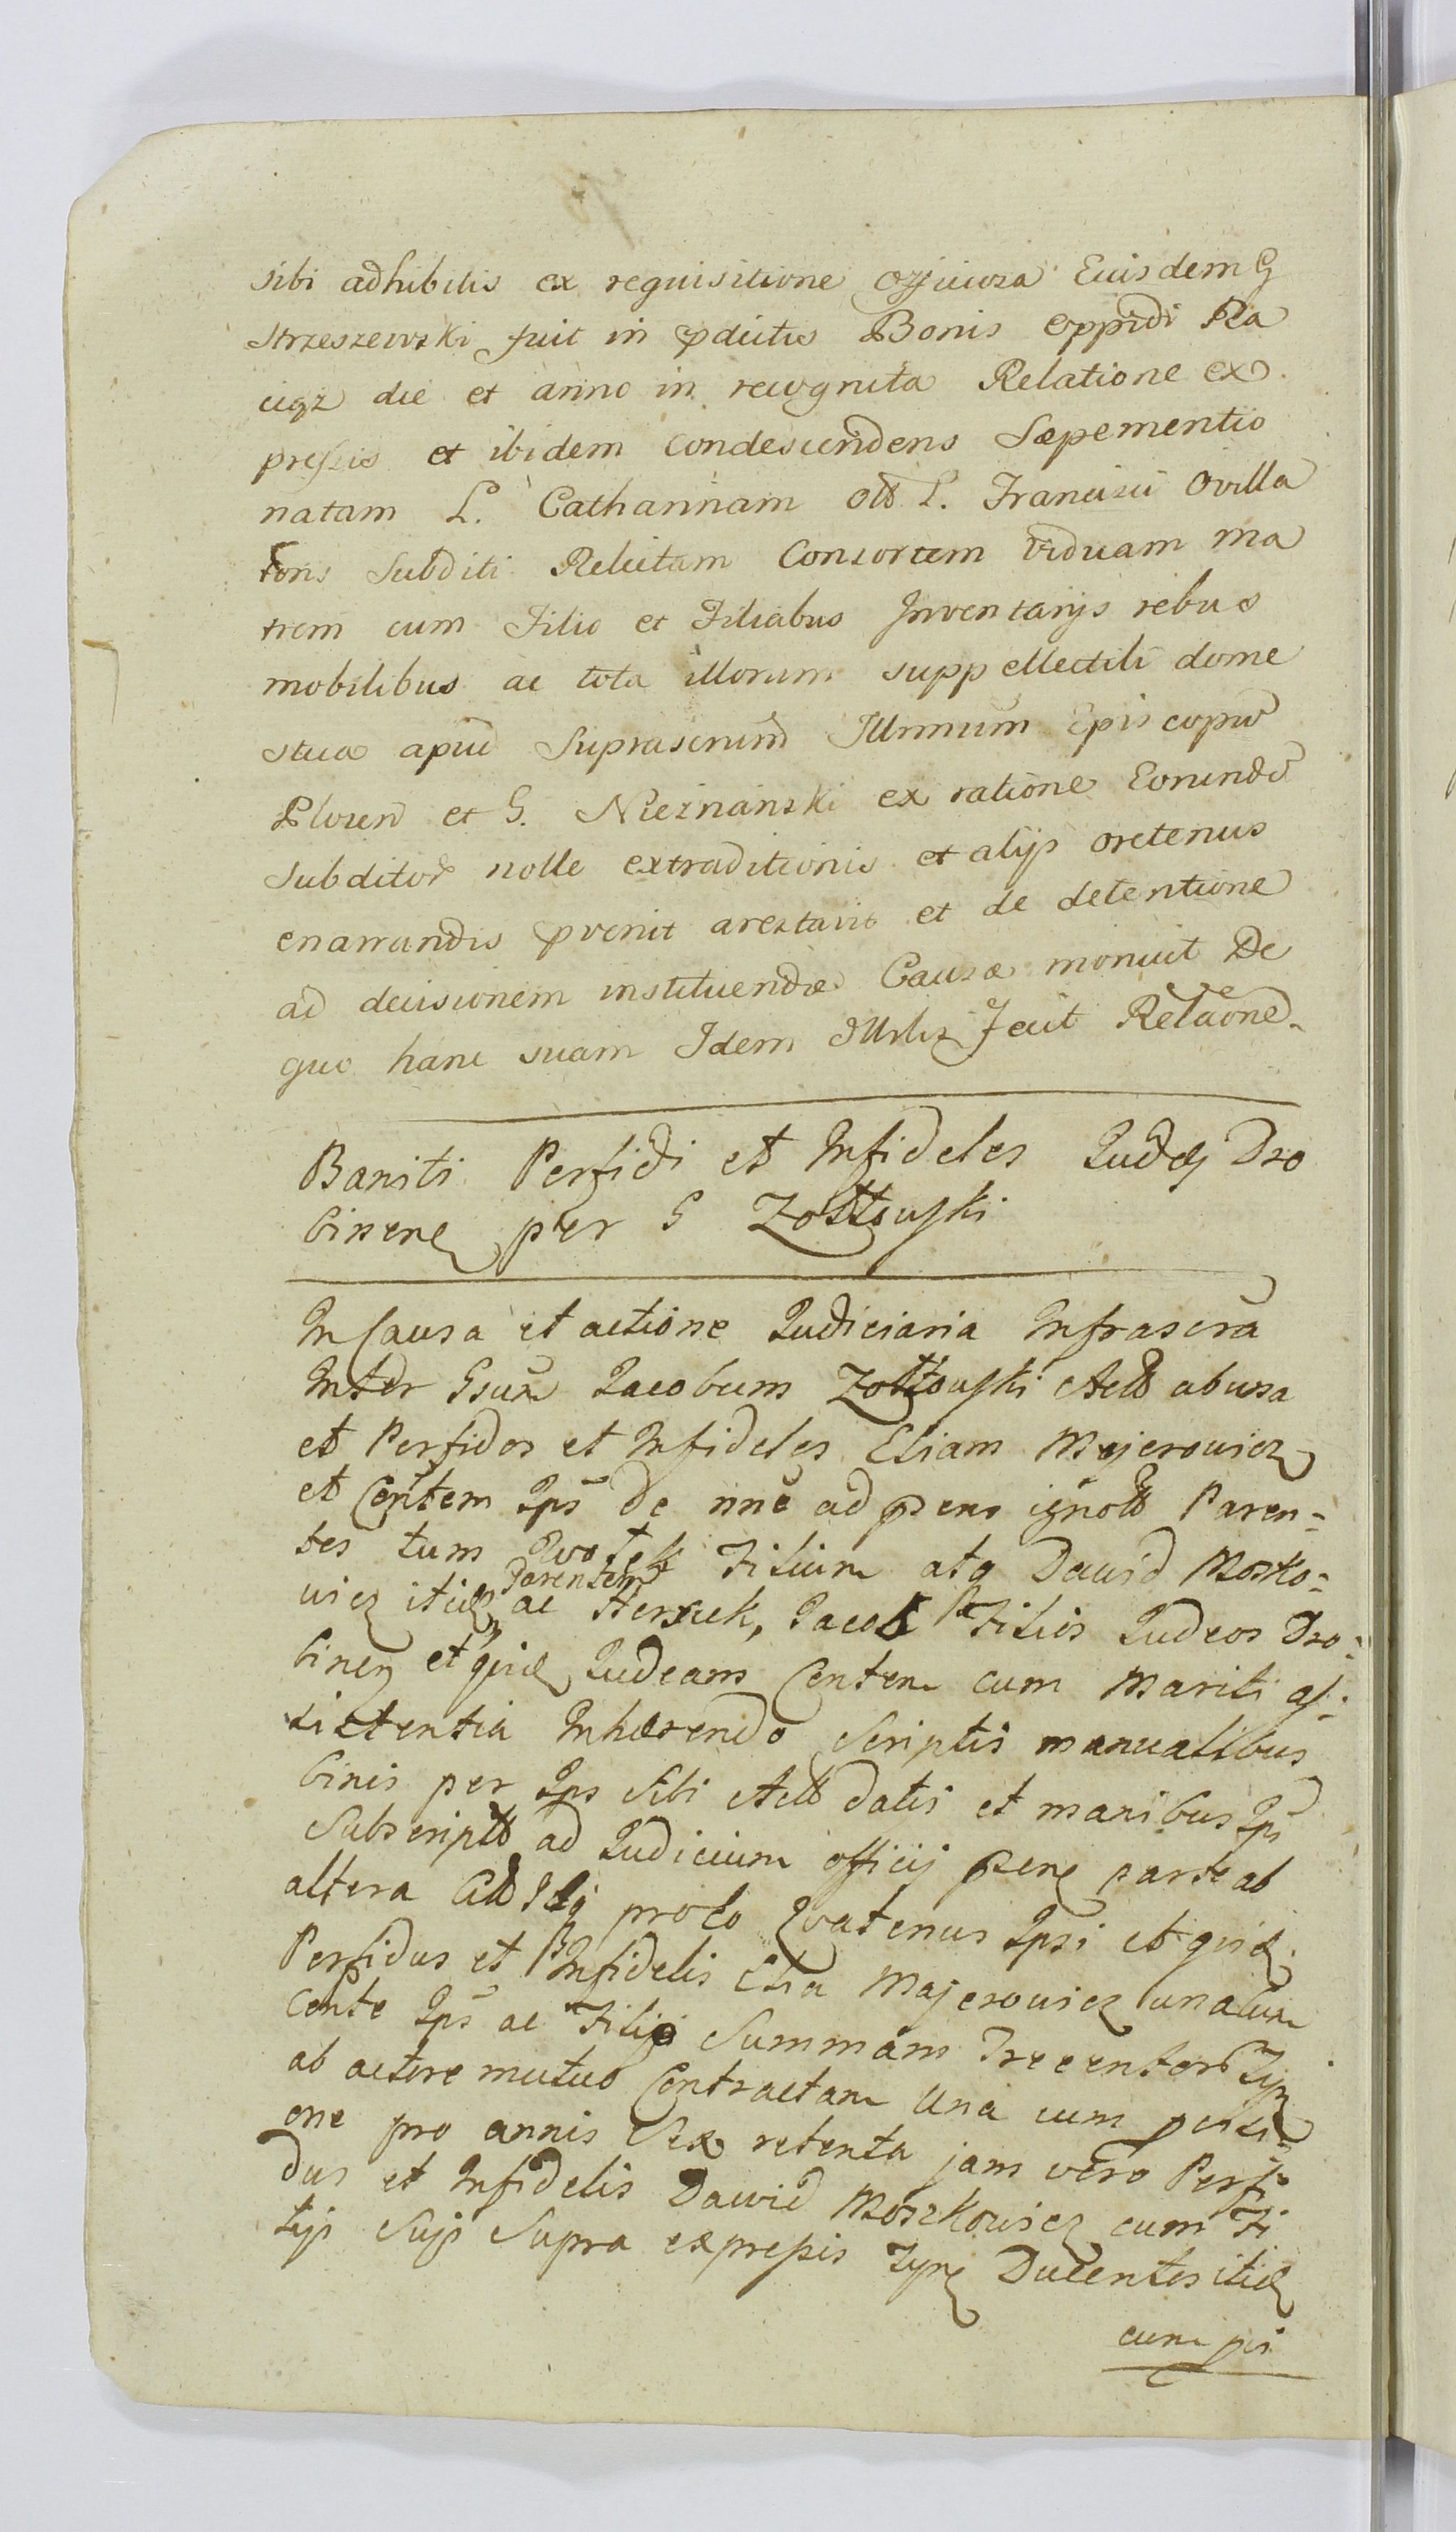 sibi adhibitis ex requisitione officiosa Eiusdem G
Strzeszewski fuit in pdictis Bonis oppidi Ra
ciąz die et anno in recognita Relatione ex
pressis et ibidem condescendens Sæpementio
natam L. Catharinam olt L. Francisci Ovilla
toris Subditi Relictam Consortem viduam ma
trem cum Filio et Filiabus Inventarijs rebus
mobilibus ac tota illorum suppellectili dome
stica apud Suprascrium Illrmum Episcopum
Plocen et G. Nieznanski ex ratione Eorundem
subditor nolle extraditionis et alijs oretenus
enarrandis pvenit arestavit et de detentione
ad decisionem instituendæ Causæ monuit De
quo hanc suam Idem Mrlis Fecit Relaone
Baniti Perfidi et Infideles Judæj Dro
binen per G Zołtowski
In Causa et actione Judiciaria Infrascra
Inter Gsum Jacobum Zołtowski Act ab una
et Perfidos et Infideles Eliam Majerowicz
et Contem Ips de nne ad psens ignott Paren=
tes tum Filium atq Dawid Mosko=
wicz itid Parentem ac Herszek, Jacob Filios Judeos Dro=
binen et qvid Judeam Conten cum Mariti as=
sistentia Inhærendo Scriptis manualibus
binis per Ips Sibi Act datis et manibus Ips
Subscriptt ad Judicium officij psens parte ab
altera Citt proco Qvatenus Ipsi et qvid
Perfidus et Infidelis Elia Majerowicz una cum
Conte Ips ac Filijs Summam Trecentor Tyn
ab actore mutuo Contractam Una cum pvisi=
one pro annis Sex retenta jam vero Perfi=
dus et Infidelis Dawid Moszkowicz cum Fi
lijs Suis Supra expressis Tyn Ducentos itid
cum pvi